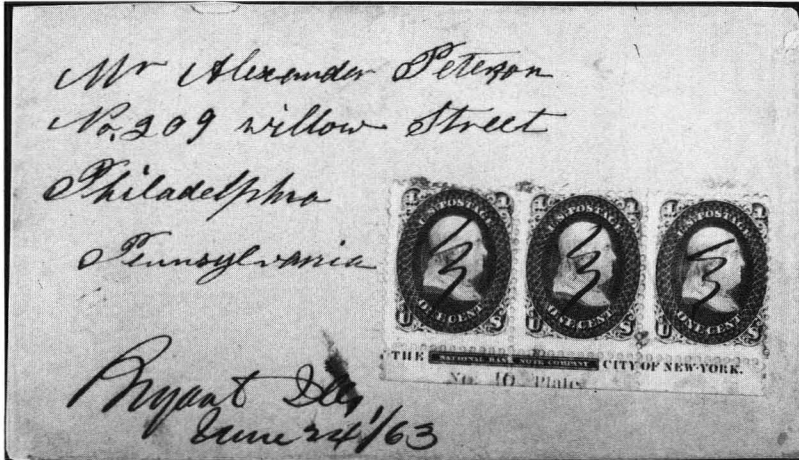 Mr Alexander Peterson
No. 209 willow Street
Philadelphia
Pennsylvania
1 1 1 1 1 1
U.S. POSTAGE U.S. POSTAGE U.S. POSTAGE
ONE CENT ONE CENT ONE CENT
U S U S U S
THE NATIONAL BANK NOTE COMPANY. CITY OF NEW-YORK.
No. 10. Plate
Bryant Ills
June 24/63